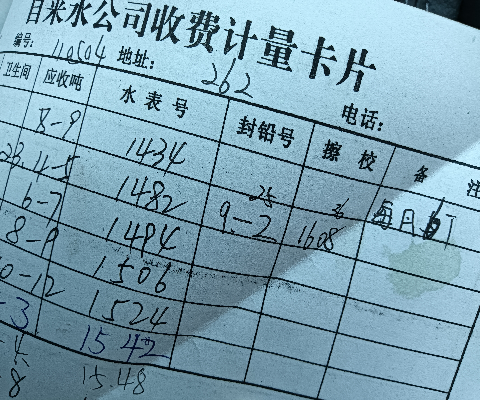 自来水公司收费计量卡片
编号: 110504 地址: 262 电话:
卫生间 应收吨 水表号 封铅号 擦校 备注
8-9 1434
4-5 1482 25 36
6-7 1494 9.-2 1608 每月
8-9 1506
10-12 1524
-3 1542
8 15.48